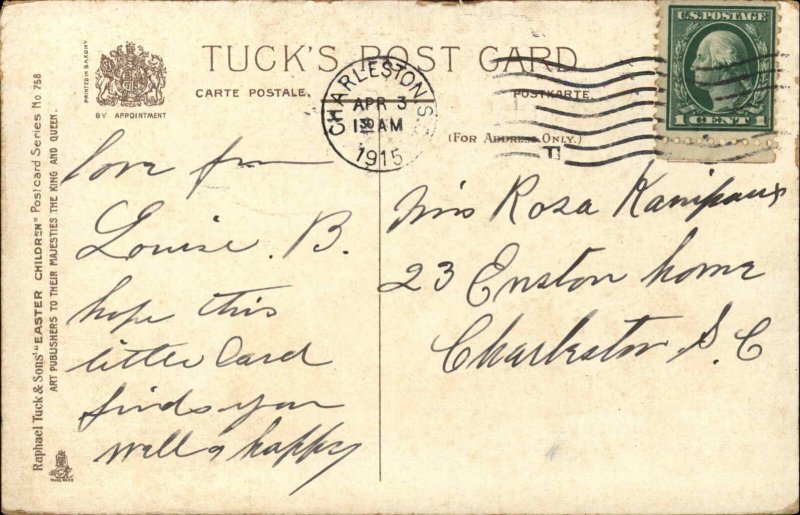 TUCK'S POST CARD
CARTE POSTALE.
POSTKARTE.
(FOR ADDRESS ONLY.)
PRINTED IN SAXONY
BY APPOINTMENT
CHARLESTON S.C.
APR 3
AM
1915
U.S. POSTAGE
1 CENT 1
love from
Louise. B.
hope this
little Card
finds you
well & happy
Miss Rosa
23 Enston home
Charleston S. C
Raphael Tuck & Sons' "EASTER CHILDREN" Postcard Series No. 758
ART PUBLISHERS TO THEIR MAJESTIES THE KING AND QUEEN.